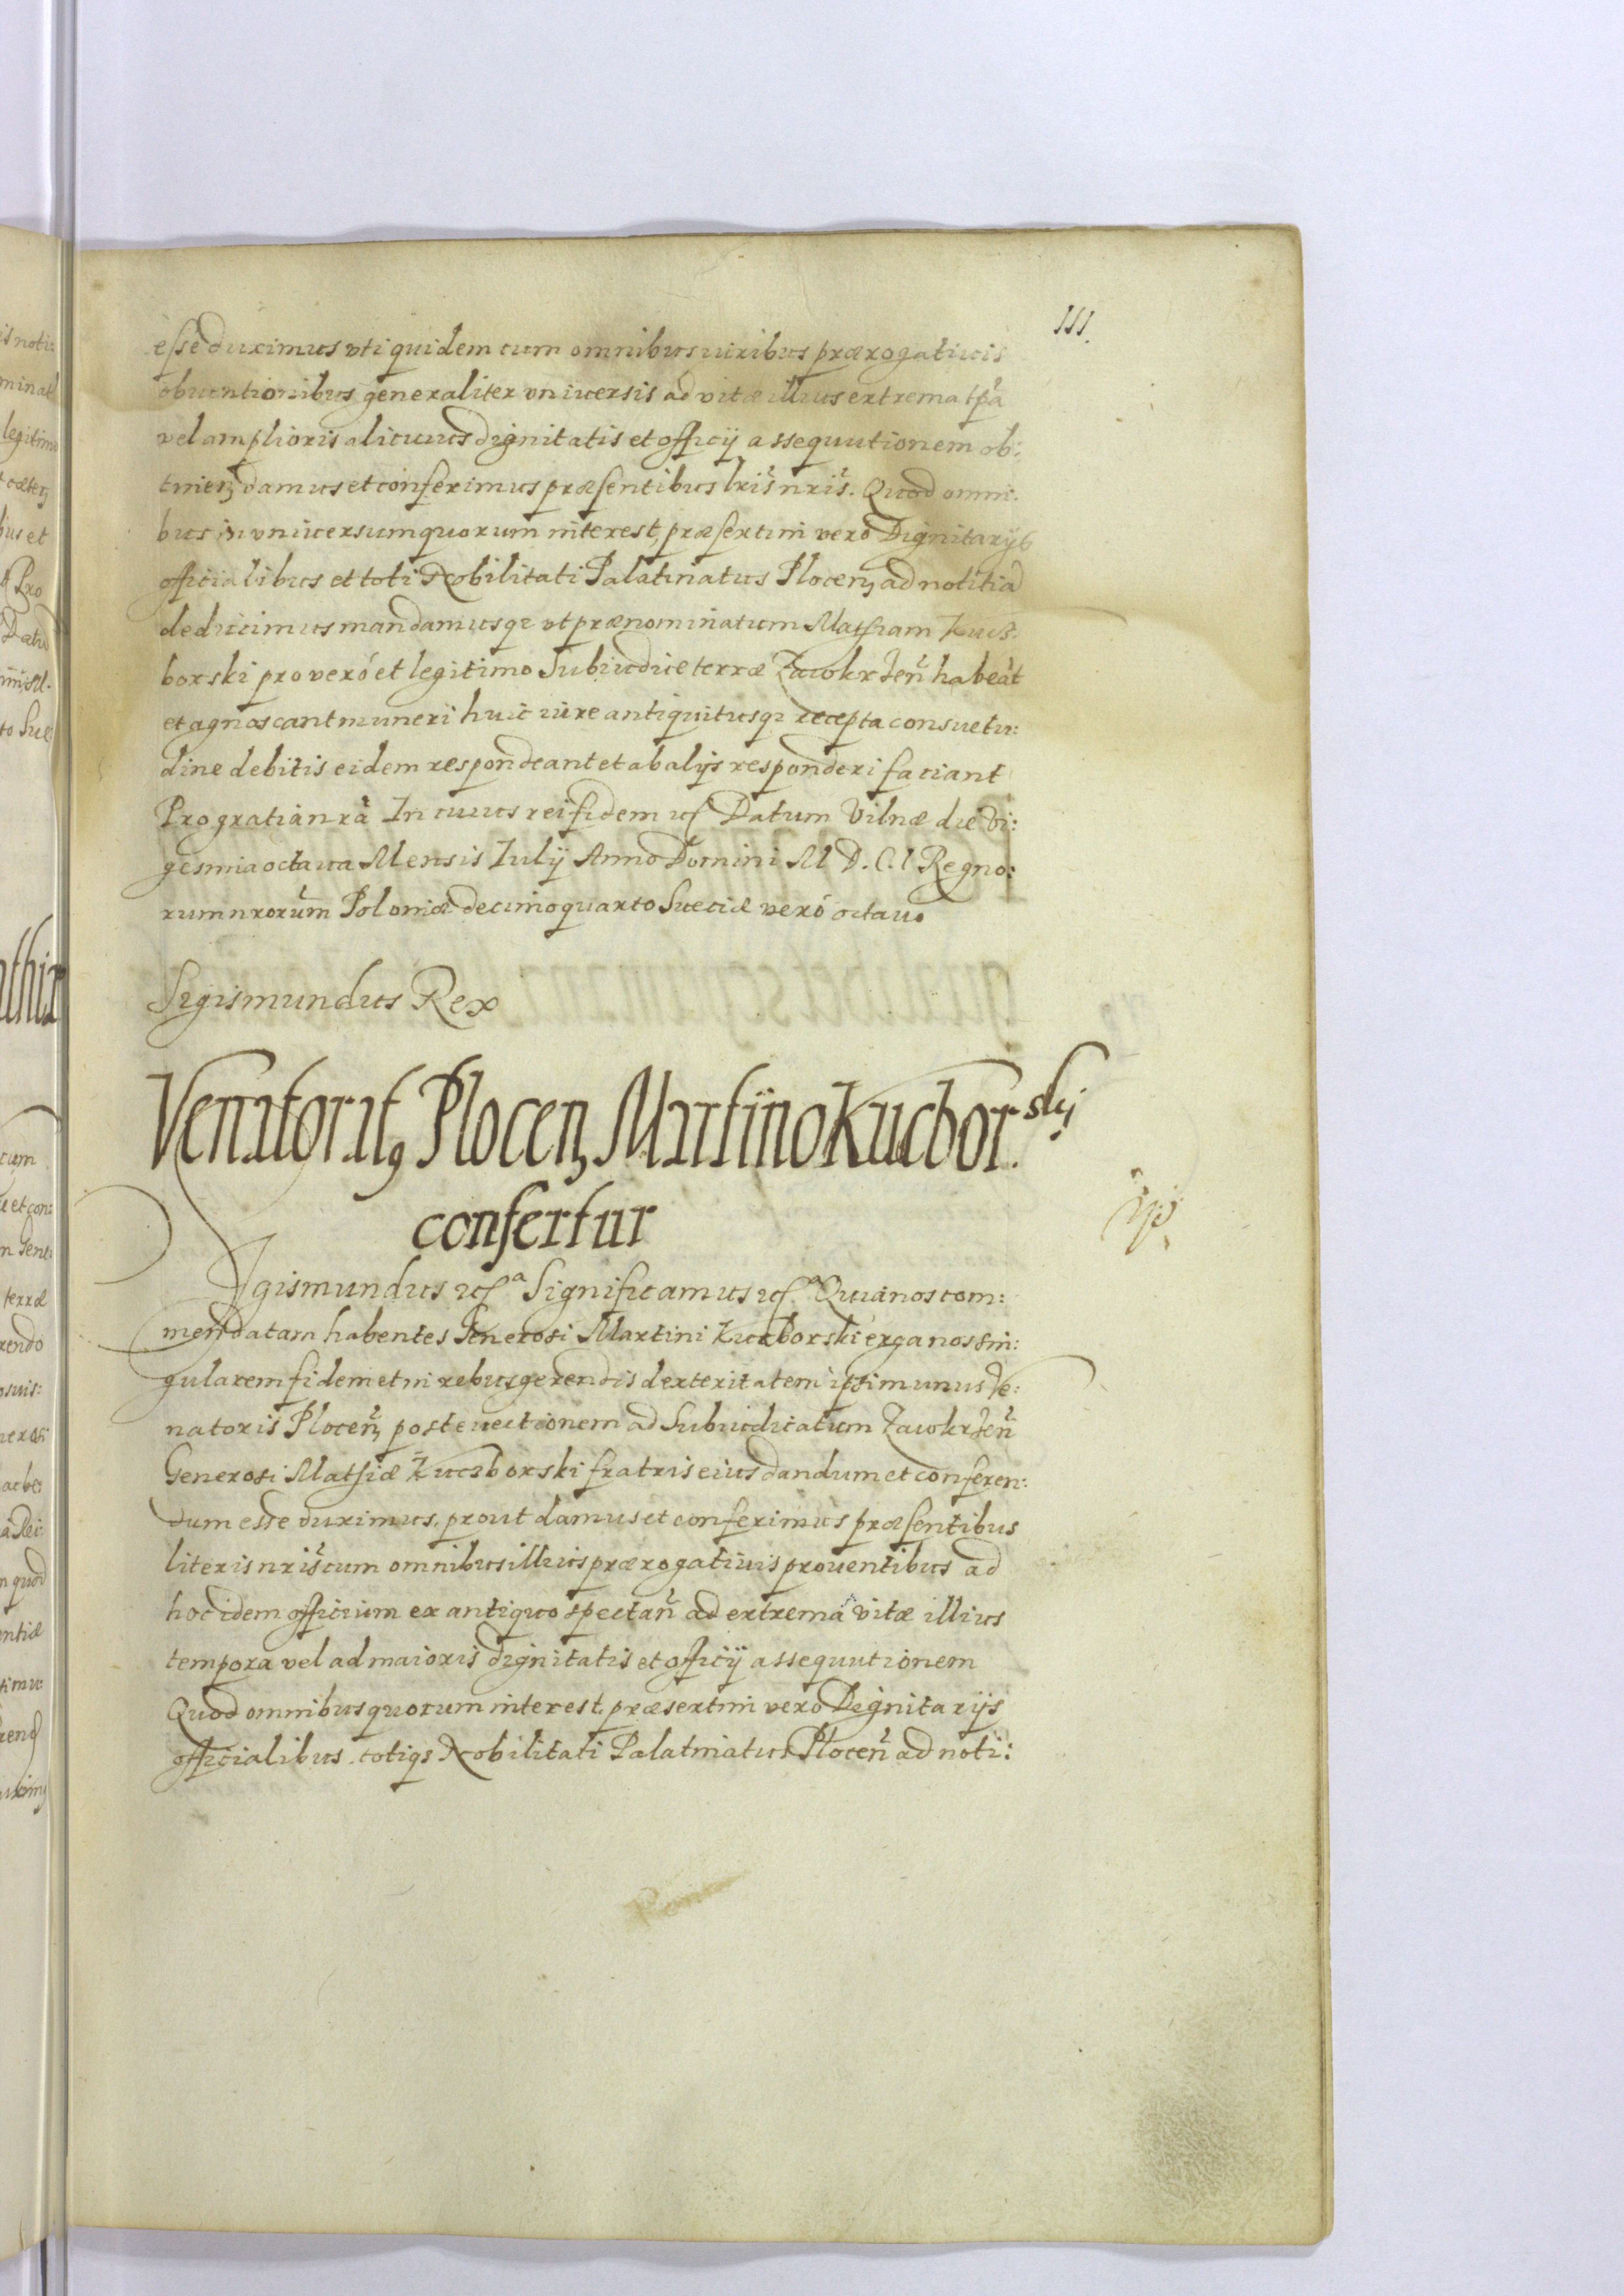 111.
esse duximus vti quidem cum omnibus iuribus prærogatiuis
obuentionibus generaliter vniuersis ad vitæ illius extrema tpa
vel amplioris alicuius dignitatis et officij assequutionem ob:
tinen damus et conferimus præsentibus lris nris. Quod omni:
bus in vniuersum quorum interest, præsertim vero Dignitarijs
officialibus et toti Nobilitati Palatinatus Plocen ad notitia
deducimus mandamusq vt prænominatum Mathiam Kucz:
borski pro vero et legitimo Subiudice terræ Zawokrzen habeat
et agnoscant muneri huic iure antiquitusq recepta consuetu:
dine debitis eidem respondeant et ab alijs responderi faciant
Pro gratia nra In cuius rei fidem etc Datum Vilnæ die Vi:
gesima octaua Mensis Iulij Anno Domini M D. C. I Regno:
rum nrorum Poloniæ decimo quarto Sueciæ vero octauo
Sigismundus Rex
Venatorat9 Plocen Martino Kucbor.skij
confertur
Sigismundus etc a Significamus etc a Quia nos com:
mendatam habentes Generosi Martini Kuczborski erga nos sin:
gularem fidem et in rebus gerendis dexteritatem ipsi munus Ve:
natoris Plocen post euectionem ad Subiudicatum Zawokrzen
Generosi Mathiæ Kuczborski fratris eius dandum et conferen:
dum esse duximus, prout damus et conferimus præsentibus
literis nris cum omnibus illius prærogatiuis prouentibus ad
hoc idem officium ex antiquo spectan ad extrema vitæ illius
tempora vel ad maioris dignitatis et officij assequutionem
Quod omnibus quorum interest, præsertim vero Dignitarijs
officialibus totiqs Nobilitati Palatinatus Plocen ad noti: